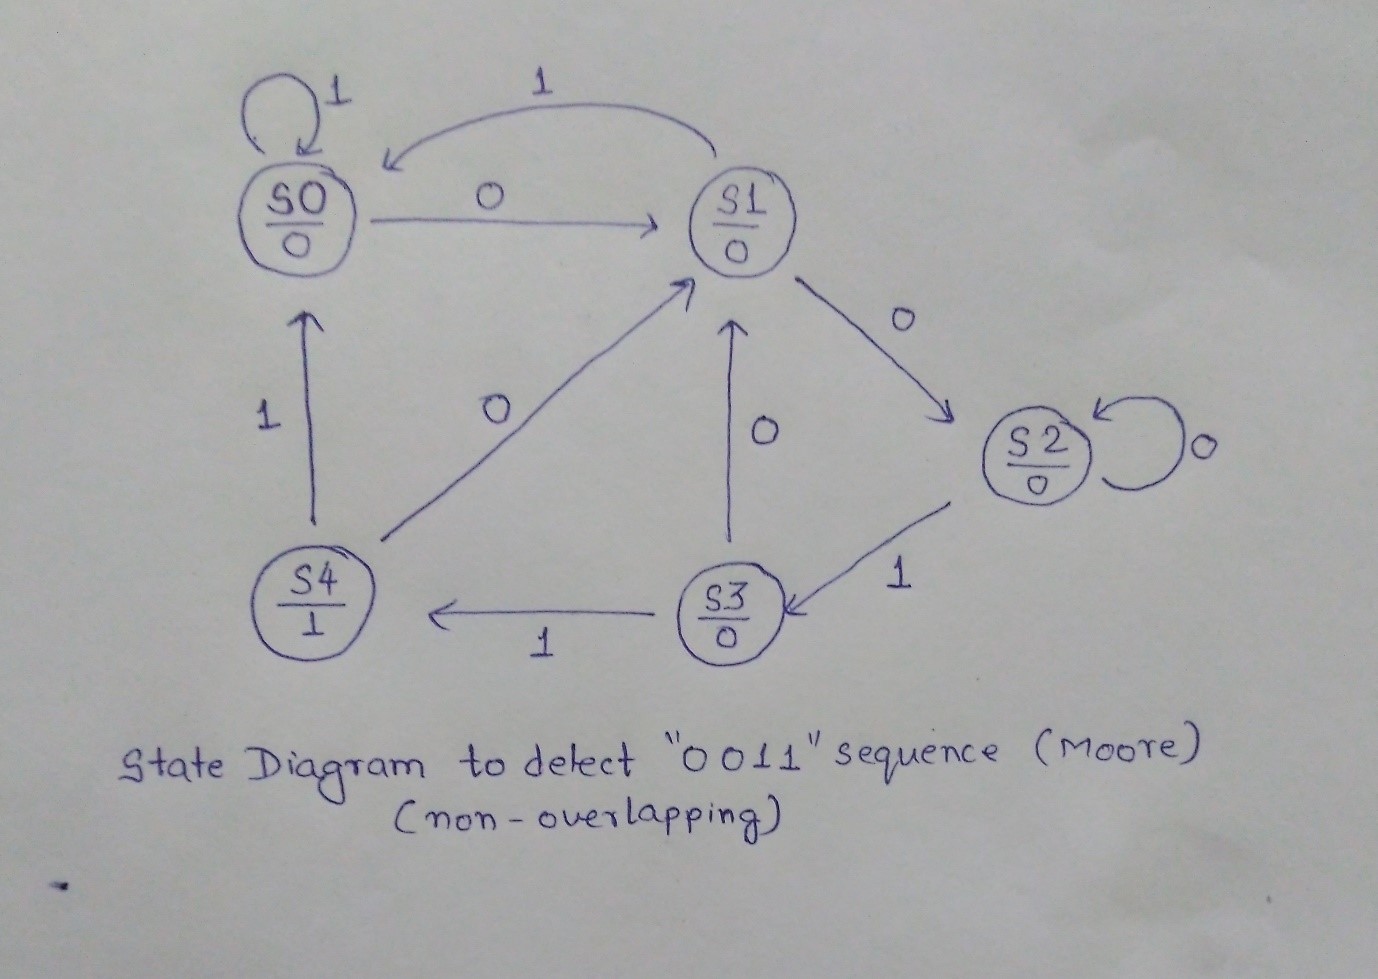 1
1
S0
0
0
S1
0
0
1
0
0
S2
0
0
S4
1
1
S3
0
1
State Diagram to detect "0011" sequence (Moore)
(non-overlapping)